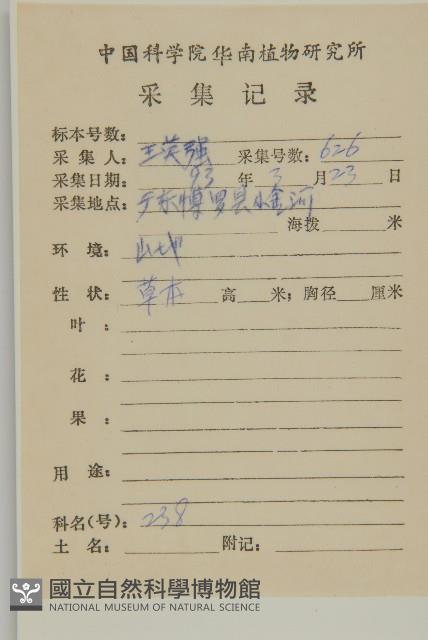 中国科学院华南植物研究所
采集记录
标本号数：
采集人：王英强 采集号数：626
采集日期：93年3月23日
采集地点：广东博罗县小金河
海拨 米
环境：山坡
性状：草本 高 米；胸径 厘米
叶：
花：
果：
用途：
科名(号)：238
土名： 附记：
國立自然科學博物館
NATIONAL MUSEUM OF NATURAL SCIENCE